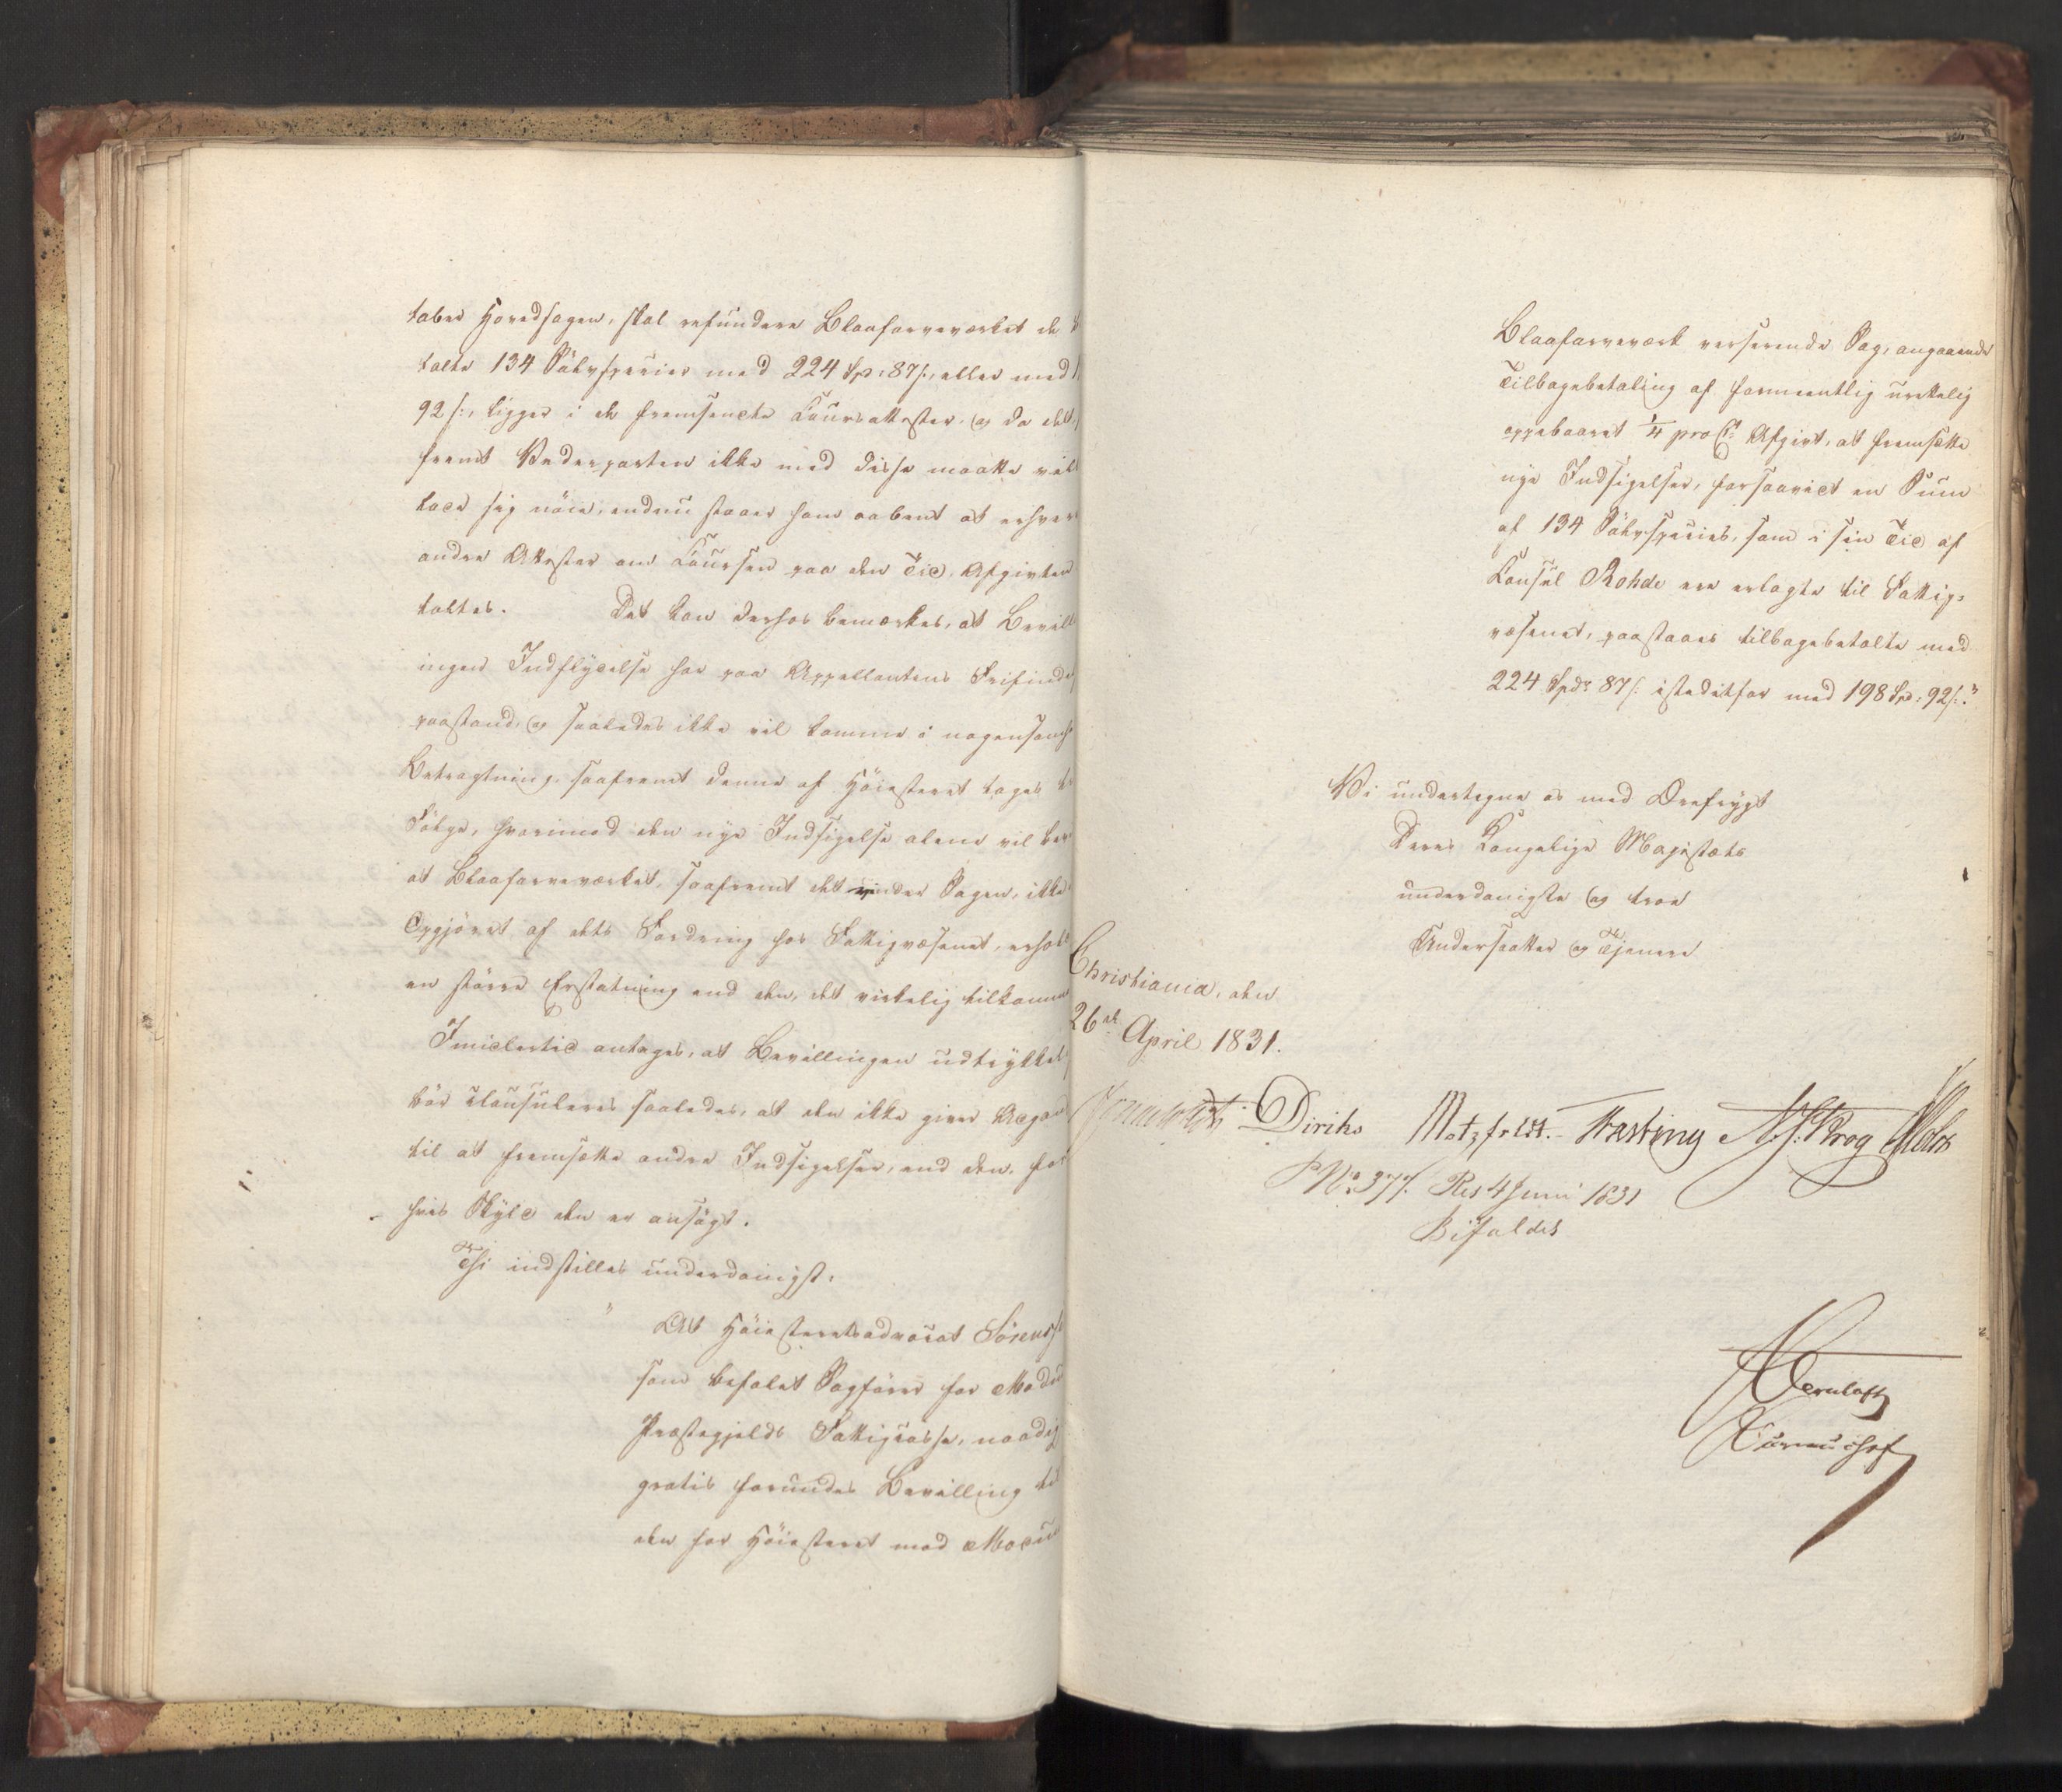 taber Hovedsagen, skal refundere Blaafarveværket de
talte 134 Sølvspecier med 224 Sp: 87 s:, eller med
92 s:, ligger i de fremsendte Coursattester, og da det,
fremt Vederparten ikke med disse maatte ville
lade sig nøie, endnu staaer ham aabent at erhver
andre Attester om Coursen paa den Tid, Afgivten
taltes. Det kan derhos bemærkes, at Bevill
ingen Indflydelse har paa Appellantens Frifindel
paastand, og saaledes ikke vil komme i nogensomhelst
Betragtning, saafremt denne af Høiesteret tages
Følge, hvorimod den nye Indsigelse alene vil
at Blaafarveværket, saafremt det vinder Sagen, ikke
Opgjøret af dets Fordring hos Fattigvæsenet, erhol
en større Erstatning end den, det virkelig tilkomme
Imidlertid antages, at Bevillingen udtrykkel
bør clausuleres saaledes, at den ikke giver Adgang
til at fremsætte andre Indsigelser, end den, for
hvis Skyld den er ansøgt.
Thi indstilles underdanigst:
" At Høiesteretsadvocat Sörens
som befalet Sagfører for Modu
Præstegjelds Fattigcasse, naadig
gratis forundes Bevilling til
den for Høiesteret mod Modu
Blaafarveværk verserende Sag, angaaende
Tilbagebetaling af formeentlig urettelig
oppebaaret 1/4 pro Ct Afgivt, at fremsætte
nye Indsigelser, forsaavidt en Sum
af 134 Sølvspecies, som i sin Tid af
Consul Rohde ere erlagte til Fattig=
væsenet, paastaaes tilbagebetalte med
224 Spdr 87 s: istedetfor med 198 Sp: 92 s:"
Vi undertegne os med Ærefrygt
Deres Kongelige Majestæts
underdanigste og troe
Undersaatter og Tjenere
Christiania, den
26de April 1831.
Diriks Motzfeldt. Fasting Krog Holst
No. 377. Res 4 Juni 1831
Bifaldes